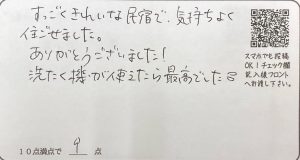 すっごくきれいな民宿で、気持ちよく
過ごせました。
ありがとうございました!
洗たく機が使えたら最高でした
スマホでも投稿
OK!チェック欄
記入後フロント
へお渡し下さい。
10点満点で 9 点